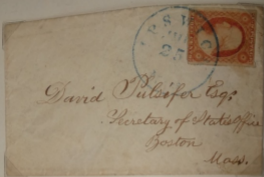 25
David Pulsifer Esq:
Secretary of State's Office
Boston
Mass.